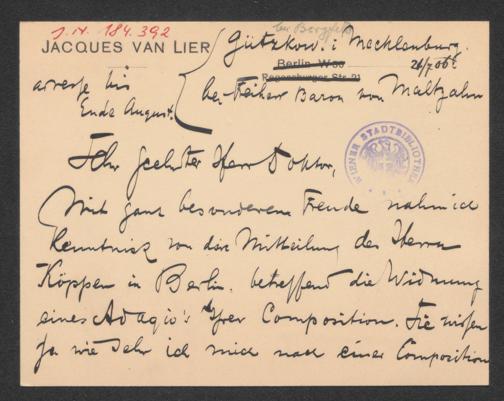 J.N. 184.392
JACQUES VAN LIER
Gützkow. i Mecklenburg.
Berlin W50
Regensburger Str. 21
26/7 06
adresse bis
Ende August.
bei Freiherr Baron von Maltzahn
WIENER STADTBIBLIOTHEK
Sehr geehrter Herr Doktor,
Mit ganz besonderer Freude nahm ich
Kenntniss von die Mitteilung des Herrn
Köppen in Berlin. betreffend die Widmung
eines Adagio's Ihrer Composition. Sie wissen
ja wie sehr ich mich nach einer Composition